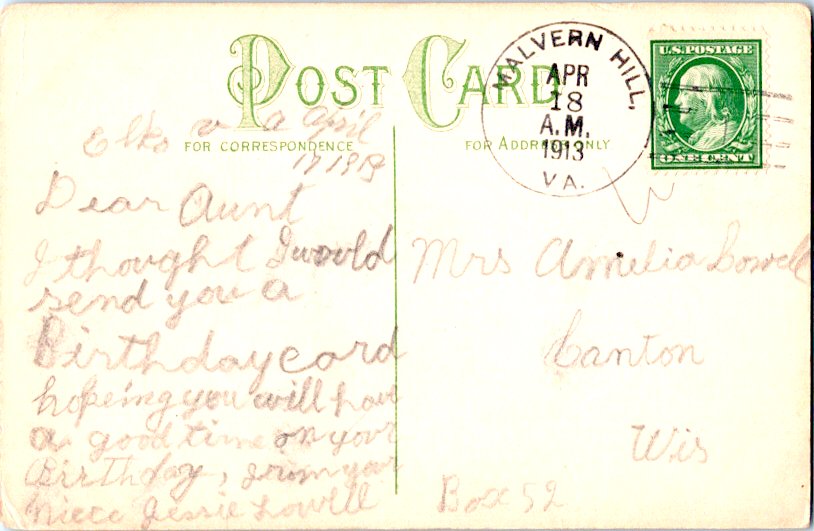 POST CARD
MALVERN HILL,
APR
18
A.M.
1913
VA.
U.S. POSTAGE
ONE CENT
FOR CORRESPONDENCE
FOR ADDRESS ONLY
Elko v a April
17 1913
Dear Aunt
I thought I would
send you a
Birthday card
hopeing you will have
a good time on your
Birthday, From your
niece Jessie Lowell
Mrs Amelia Lowell
Canton
Wis
Box 52